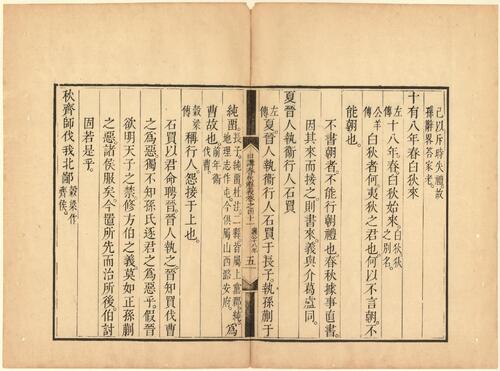 己以斥時失禮故
孫辭畧荅家老
十有八年春白狄來
左傳十八年春白狄始來白狄狄之別名
公羊傳白狄者何夷狄之君也何以不言朝不
能朝也
不書朝者不能行朝禮也春秋據事直書
因其來而接之則書來義與介葛盧同
夏晉人執衞行人石買
左傳夏晉人執衞行人石買于長子執孫蒯于
純畱長子純畱杜註二縣皆屬上黨郡純
地理志作屯今俱屬山西潞安府爲
曹故也前年衞伐曹
穀梁傳稱行人怨接于上也
石買以君命聘晉晉人執之晉知買伐曹
之爲惡獨不知孫氏逐君之爲惡乎假晉
欲明天子之禁修方伯之義莫如正孫蒯
之惡諸侯服矣今置所先而治所後伯討
固若是乎
秋齊師伐我北鄙穀梁作齊侯